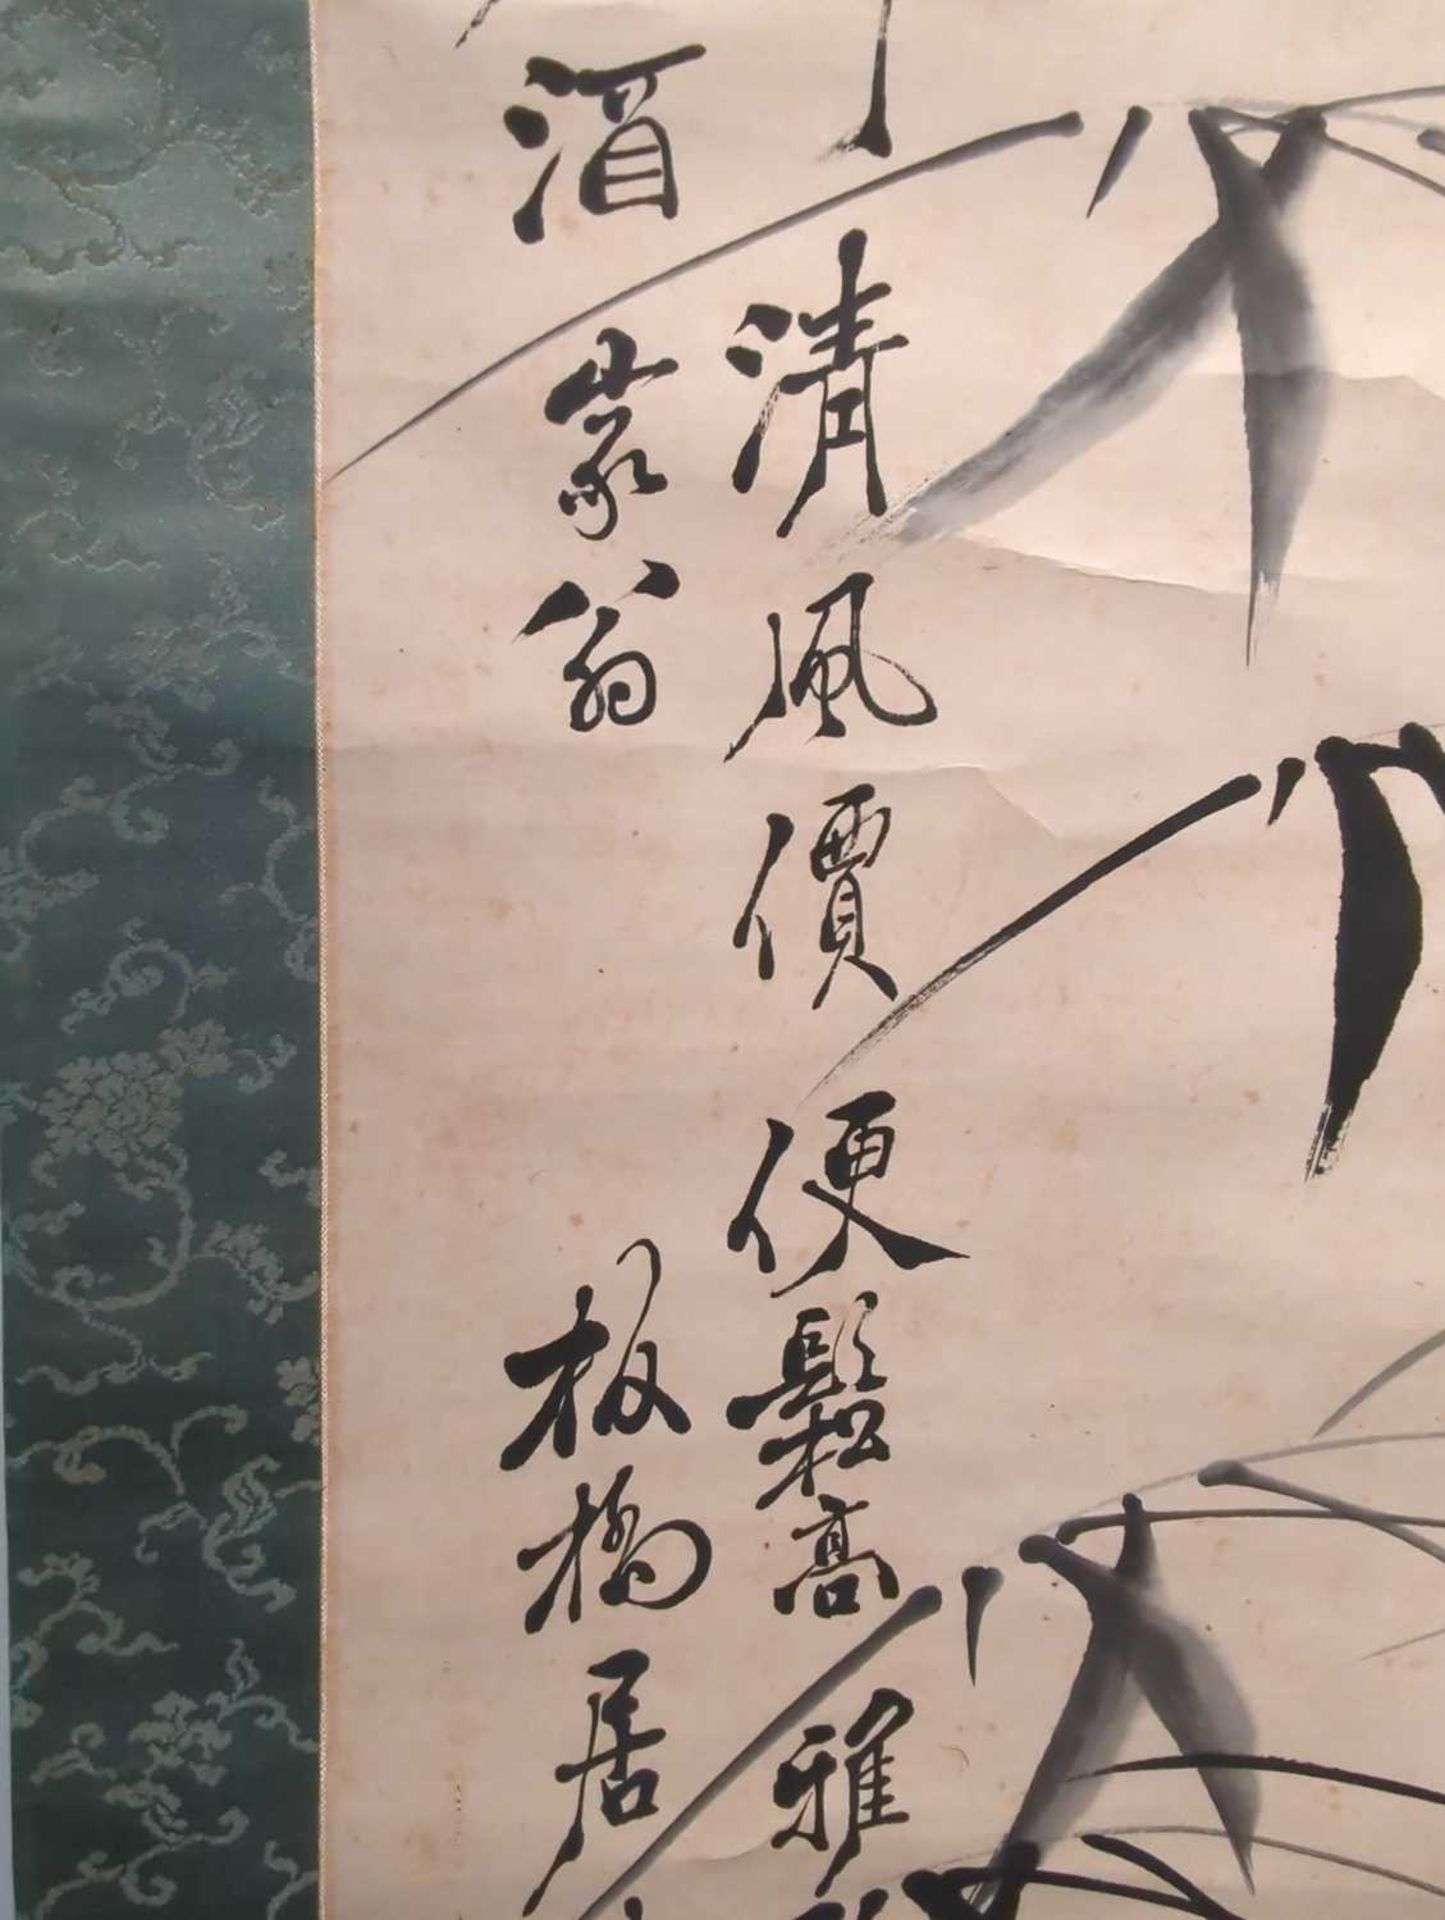 清風價便鬆高雅
酒家翁 板橋居